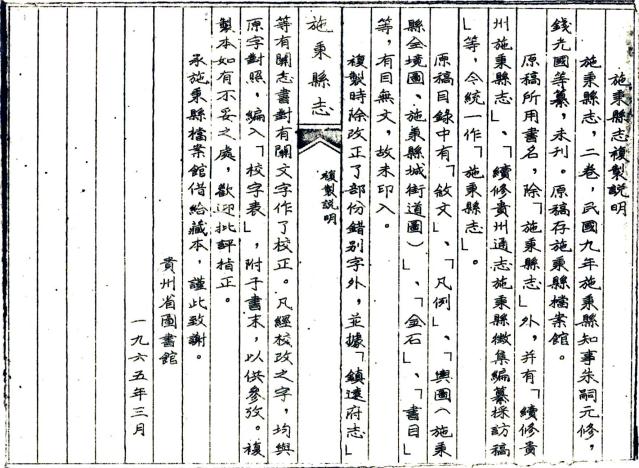 施秉縣志複製説明
施秉縣志，二卷，民國九年施秉縣知事朱嗣元修，
錢光國等纂，未刊。原稿存施秉縣檔案館。
原稿所用書名，除「施秉縣志」外，并有「續修貴
州施秉縣志」、「續修貴州通志施秉縣徵集編纂採訪稿
」等，今統一作「施秉縣志」。
原稿目録中有「敘文」、「凡例」、「輿圖（施秉
縣全境圖、施秉縣城街道圖）」、「金石」、「書目」
等，有目無文，故未印入。
複製時除改正了部份錯别字外，並據「鎮遠府志」
施秉縣志
複製説明
等有關志書對有關文字作了校正。凡經校改之字，均與
原字對照，編入「校字表」，附于書末，以供參攷。複
製本如有不妥之處，歡迎批評指正。
承施秉縣檔案館借給藏本，謹此致謝。
貴州省圖書館
一九六五年三月